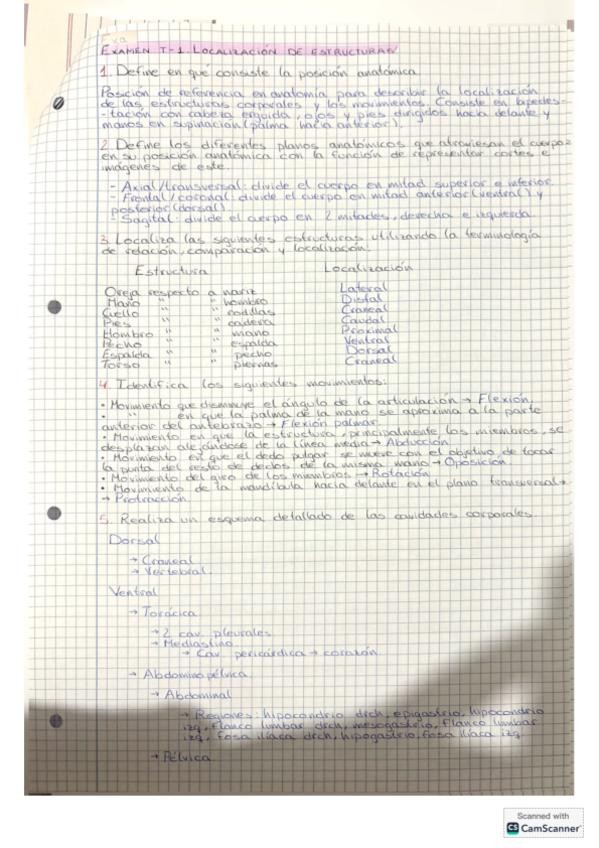 Eva
EXAMEN T-1. LOCALIZACIÓN DE ESTRUCTURAS
1. Define en qué consiste la posición anatómica
Posición de referencia en anatomía para describir la localización
de las estructuras corporales y los movimientos. Consiste en bipedes-
-tación con cabeza erguida, ojos y pies dirigidos hacia delante y
manos en supinación (palma hacia anterior).
2. Define los diferentes planos anatómicos que atraviesan el cuerpo
en su posición anatómica con la función de representar cortes e
imágenes de este.
- Axial/transversal: divide el cuerpo en mitad superior e inferior.
- Frontal/coronal: divide el cuerpo en mitad anterior (ventral) y
posterior (dorsal).
- Sagital: divide el cuerpo en 2 mitades, derecha e izquierda
3. Localiza las siguientes estructuras utilizando la terminología
de relación, comparación y localización:
Estructura Localización
Oreja respecto a nariz Lateral
Mano " " hombro Distal
Cuello " " rodillas Craneal
Pies " " cadera Caudal
Hombro " " mano Proximal
Pecho " " espalda Ventral
Espalda " " pecho Dorsal
Torso " " piernas Craneal
4. Identifica los siguientes movimientos:
• Movimiento que disminuye el ángulo de la articulación → Flexión.
• " en que la palma de la mano se aproxima a la parte
anterior del antebrazo → Flexión palmar.
• Movimiento en que la estructura, principalmente los miembros, se
desplazan alejándose de la línea media → Abducción.
• Movimiento en que el dedo pulgar se mueve con el objetivo de tocar
la punta del resto de dedos de la misma mano → Oposición.
• Movimiento del giro de los miembros → Rotación
• Movimiento de la mandíbula hacia delante en el plano transversal
→ Protracción
5. Realiza un esquema detallado de las cavidades corporales.
Dorsal
→ Craneal
→ Vertebral
Ventral
→ Torácica
→ 2 cav pleurales
→ Mediastino
→ Cav pericárdica → corazón
→ Abdominopélvica
→ Abdominal
→ Regiones: hipocondrio drch, epigastrio, hipocondrio
izq, flanco lumbar drch, mesogastrio, flanco lumbar
izq, fosa ilíaca drch, hipogastrio, fosa ilíaca izq
→ Pélvica
Scanned with
CS CamScanner